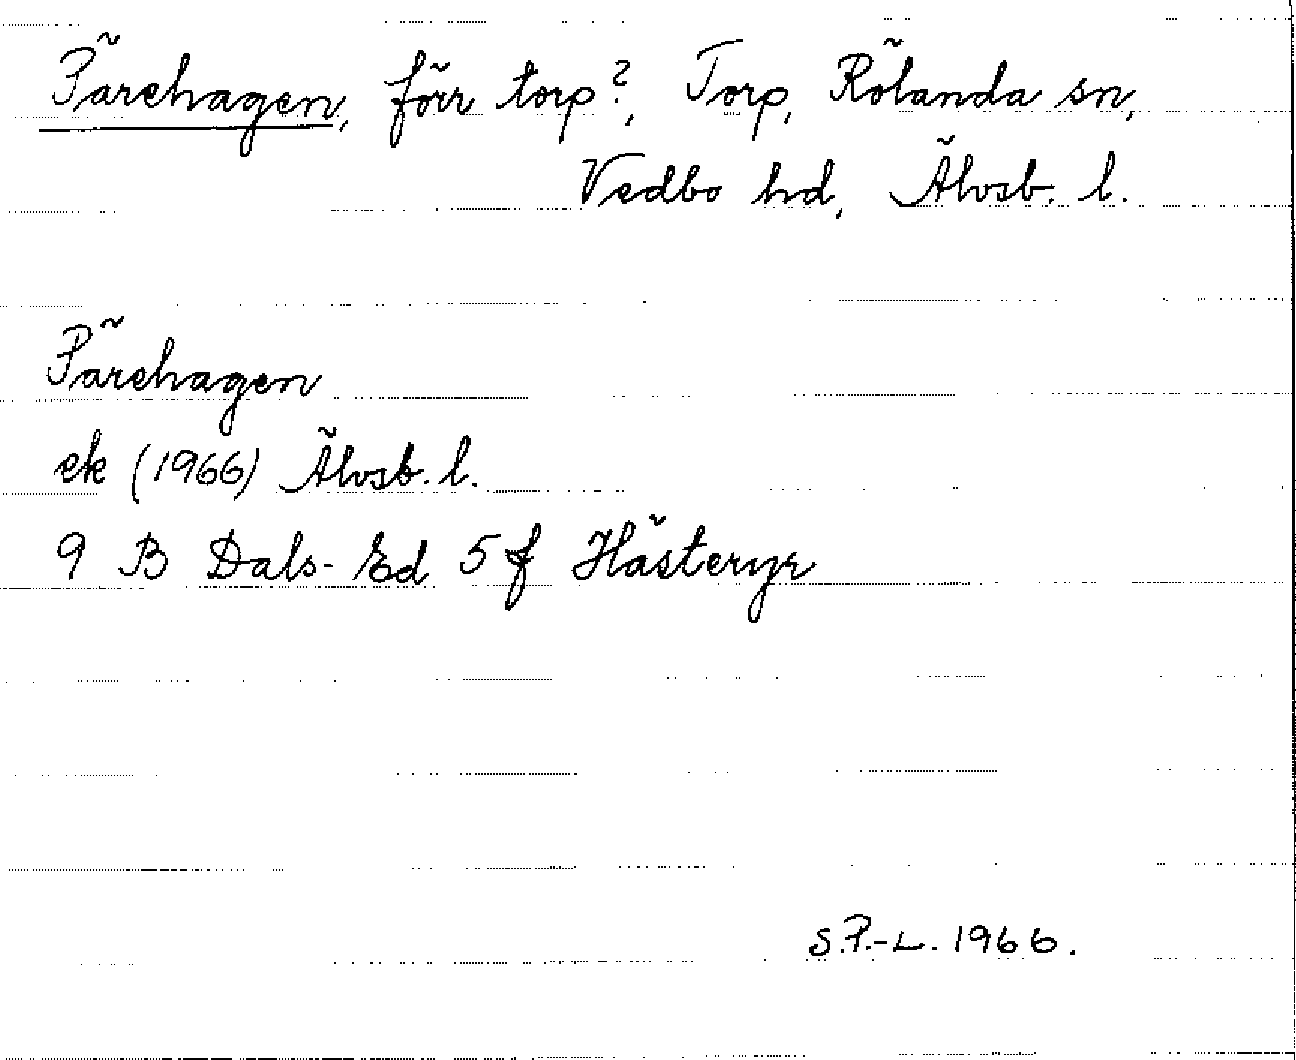 Pärehagen, förr torp?, Torp, Rölanda sn,
Vedbo hd, Älvsb. l.
Pärehagen
ek (1966) Älvsb. l.
9 B Dals-Ed 5 f Hästeryr
S.P.-L. 1966.